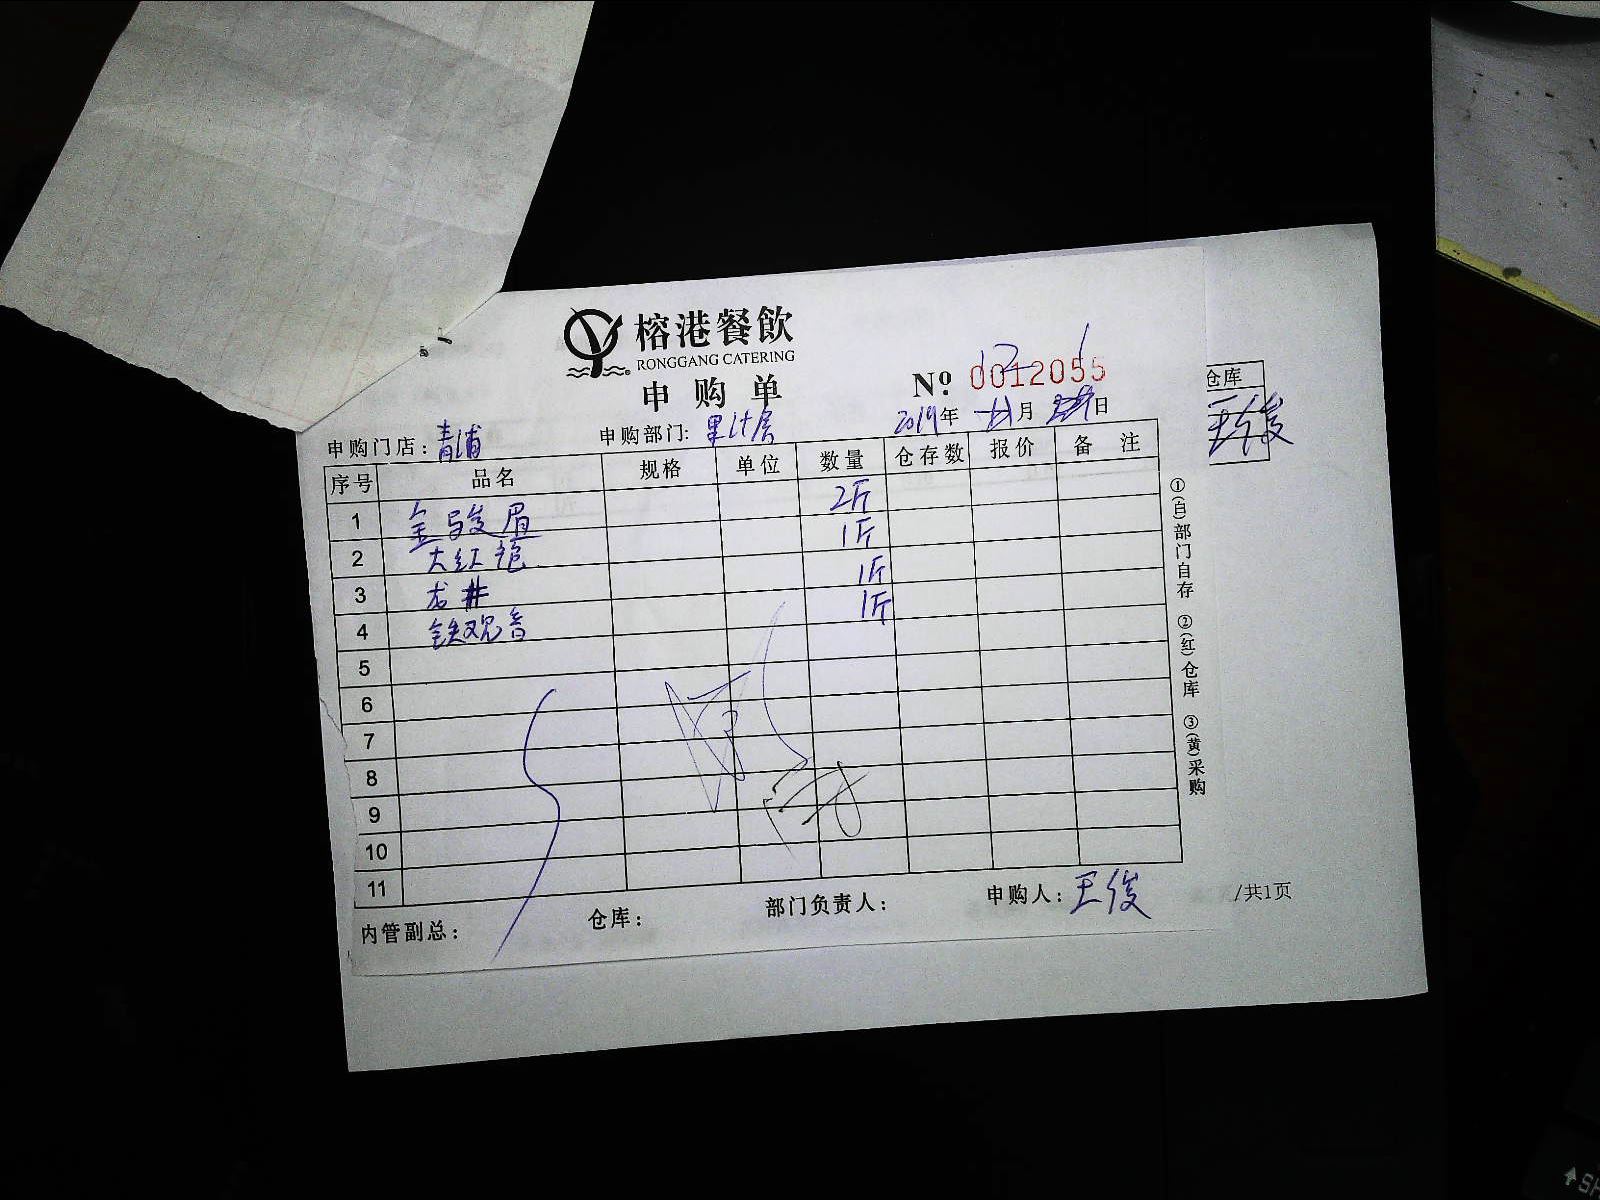 榕港餐飲
RONGGANG CATERING
申购单
Nº 0012055
12 1
2019年 月 日
申购门店：青浦 申购部门：果汁房
序号 品名 规格 单位 数量 仓存数 报价 备注
1 金骏眉 2斤
2 大红袍 1斤
3 龙井 1斤
4 铁观音 1斤
5
6
7
8
9
10
11
内管副总： 仓库： 部门负责人： 申购人：王俊
①(白)部门自存 ②(红)仓库 ③(黄)采购
仓库
王俊
/共1页